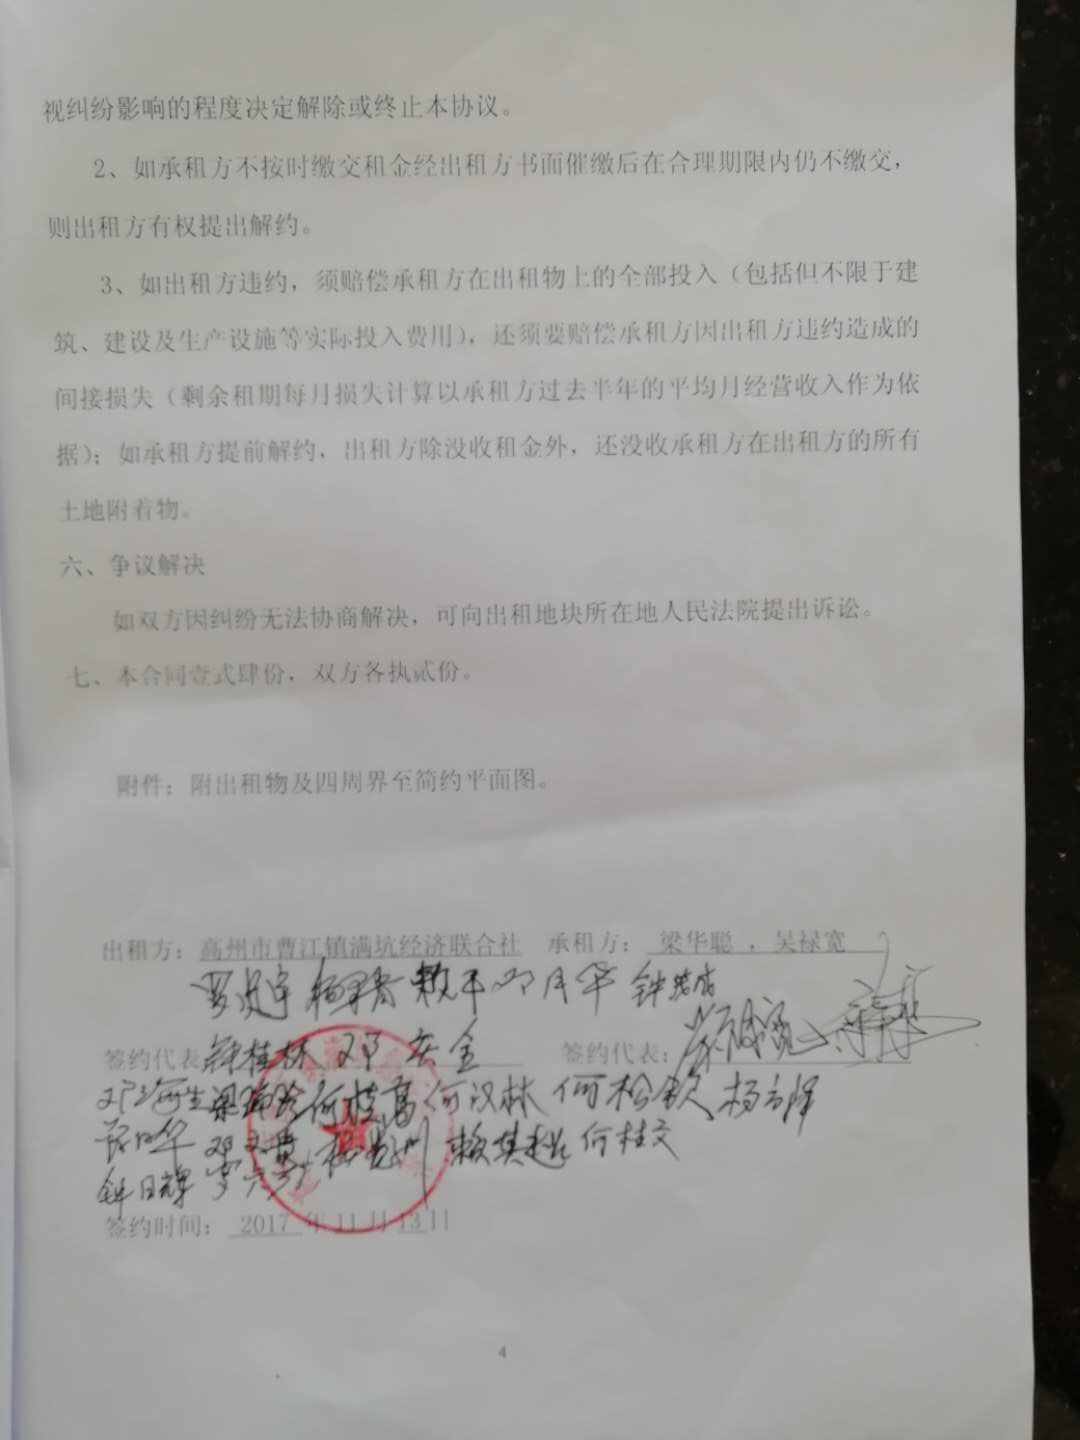 视纠纷影响的程度决定解除或终止本协议。
2、如承租方不按时缴交租金经出租方书面催缴后在合理期限内仍不缴交，
则出租方有权提出解约。
3、如出租方违约，须赔偿承租方在出租物上的全部投入（包括但不限于建
筑、建设及生产设施等实际投入费用），还须要赔偿承租方因出租方违约造成的
间接损失（剩余租期每月损失计算以承租方过去半年的平均月经营收入作为依
据）；如承租方提前解约，出租方除没收租金外，还没收承租方在出租方的所有
土地附着物。
六、争议解决
如双方因纠纷无法协商解决，可向出租地块所在地人民法院提出诉讼。
七、本合同壹式肆份，双方各执贰份。
附件：附出租物及四周界至简约平面图。
出租方：高州市曹江镇满坑经济联合社 承租方： 梁华聪 ，吴禄宽
签约代表 钟桂林 签约代表：
何桂高 何汉林 何松钦
赖其超 何桂文
钟日辉
签约时间： 2017 年 11 月 13 日
4